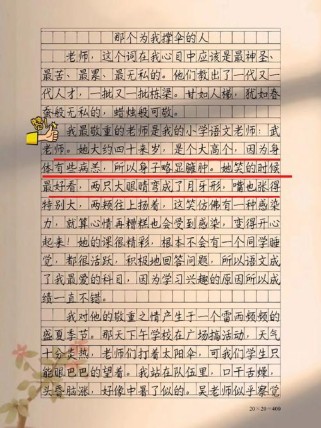 那个为我撑伞的人
老师，这个词在我心目中应该是最神圣、
最苦、最累、最无私的。他们教出了一代又一
代人才，一批又一批栋梁。甘如人梯，犹如春
蚕般无私的，蜡烛般可敬。
我最敬重的老师是我的小学语文老师：武
老师。她大约四十来岁，是个大高个，因为身
体有些病恙，所以身子略显臃肿。她笑的时候
最好看，两只大眼睛弯成了月牙形，嘴也张得
特别大，两颊往上扬着，这笑仿佛有一种感染
力，就算心情再糟糕也会受到感染，变得开心
起来！她的课很精彩，根本不会有一个同学睡
觉，都很活跃，积极地回答问题，所以语文成
了我最爱的科目，因为学习兴趣的原因所以成
绩一直不错。
我对他的敬重之情产生于一个雷雨频频的
盛夏季节。那天下午学校在广场搞活动，天气
十分炎热，老师们打着太阳伞，可我们学生只
能眼巴巴的望着。我站在队伍里，口干舌燥，
头昏脑涨，好像中暑了似的。吴老师似乎察觉
20×20=400